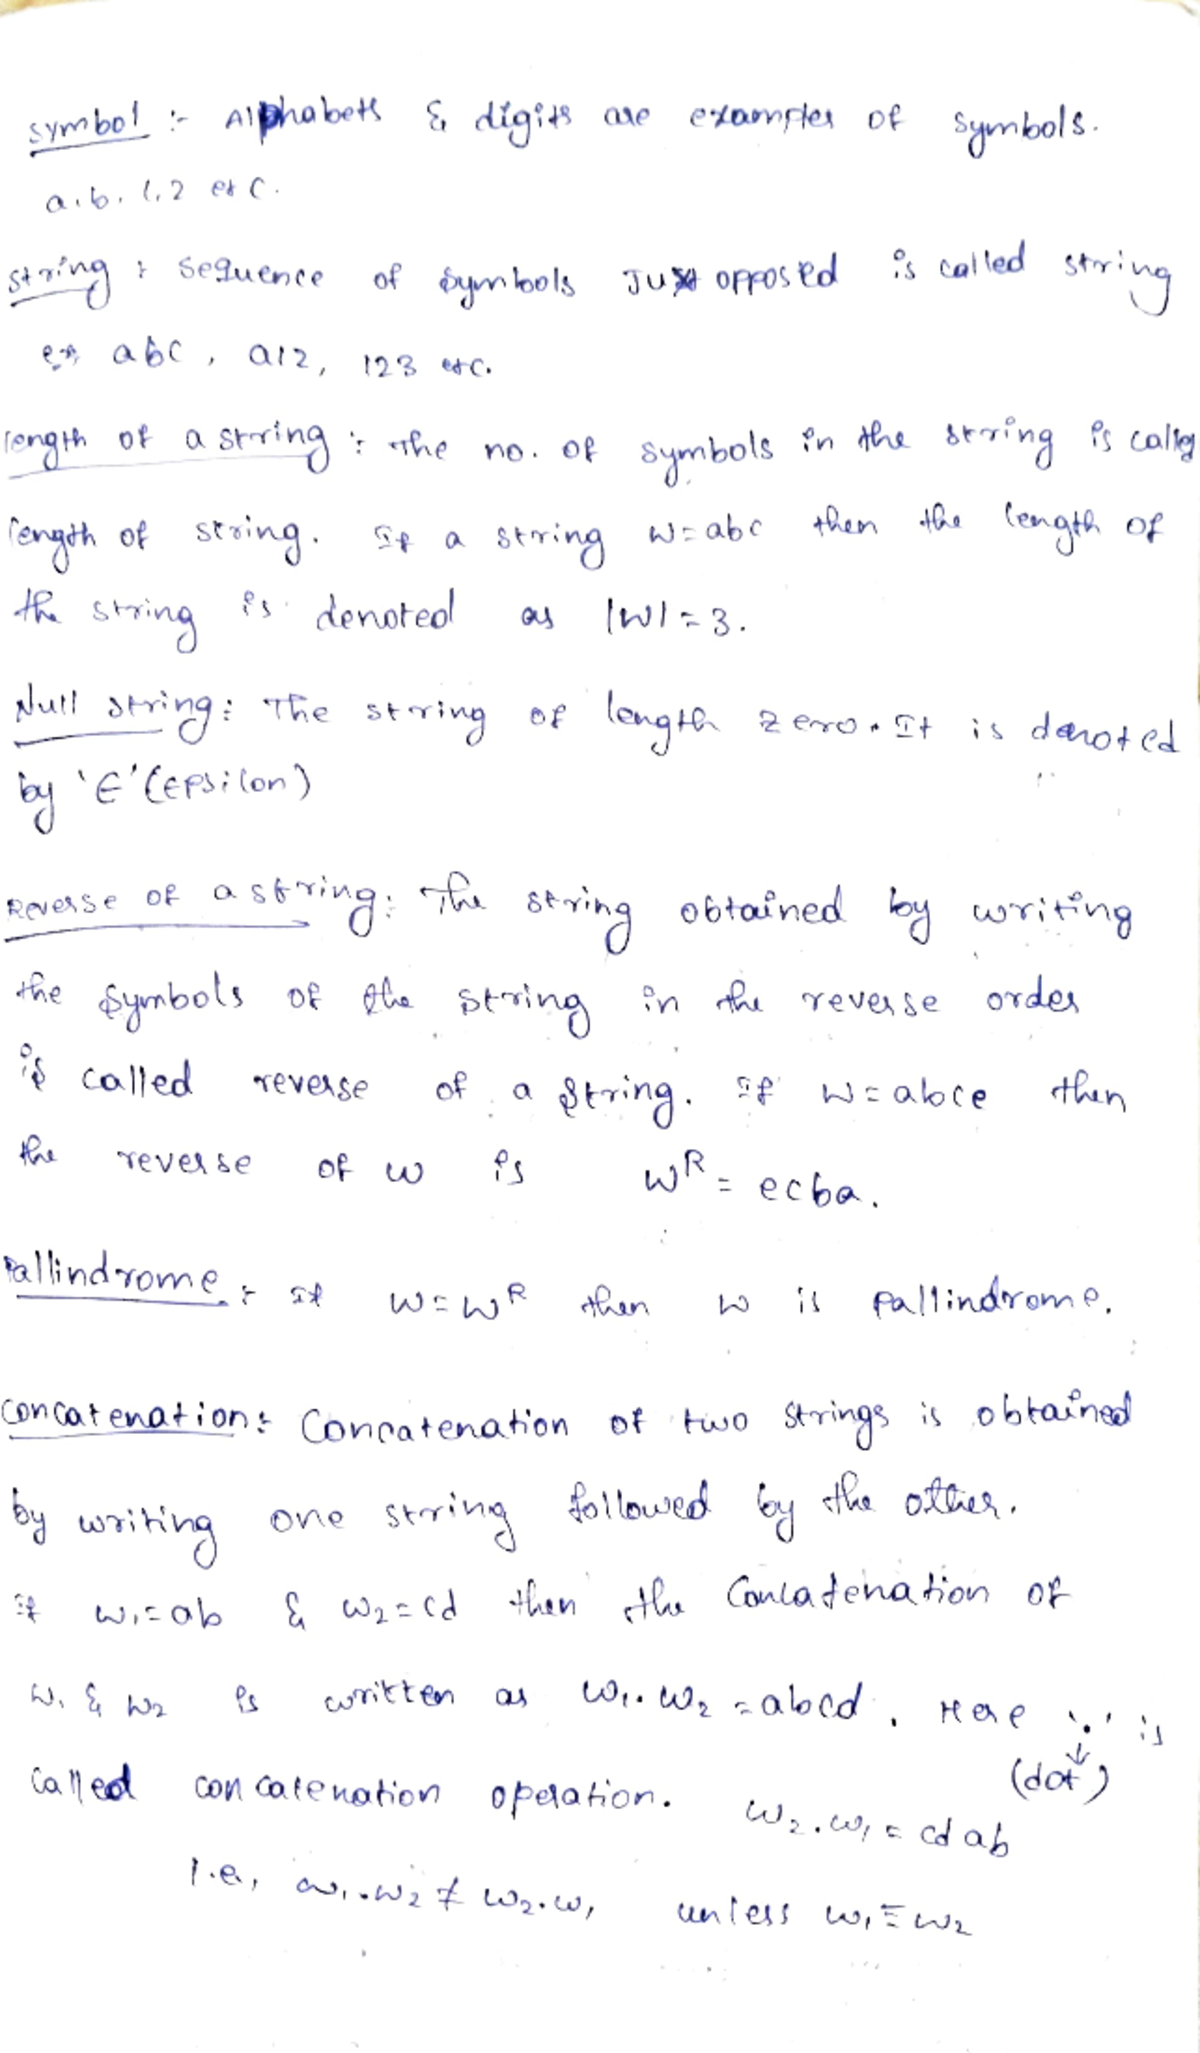 symbol :- Alphabets & digits are examples of symbols.
a, b, 1, 2 etc.
string : sequence of symbols Juxt opposed is called string
ex, abc, a12, 123 etc.
length of a string : The no. of symbols in the string is called
length of string. If a string w=abc then the length of
the string is denoted as |w|=3.
Null string : The string of length zero. It is denoted
by '∈' (Epsilon)
Reverse of a string : The string obtained by writing
the symbols of the string in the reverse order
is called reverse of a string. If w=abce then
the reverse of w is w^R = ecba.
Pallindrome : If w=w^R then w is pallindrome.
Concatenation : Concatenation of two strings is obtained
by writing one string followed by the other.
if w₁=ab & w₂=cd then the Concatenation of
w₁ & w₂ is written as w₁.w₂ =abcd. Here '.' is
↓
(dot)
called concatenation operation. w₂.w₁ = cdab
i.e, w₁.w₂ ≠ w₂.w₁ unless w₁≡w₂